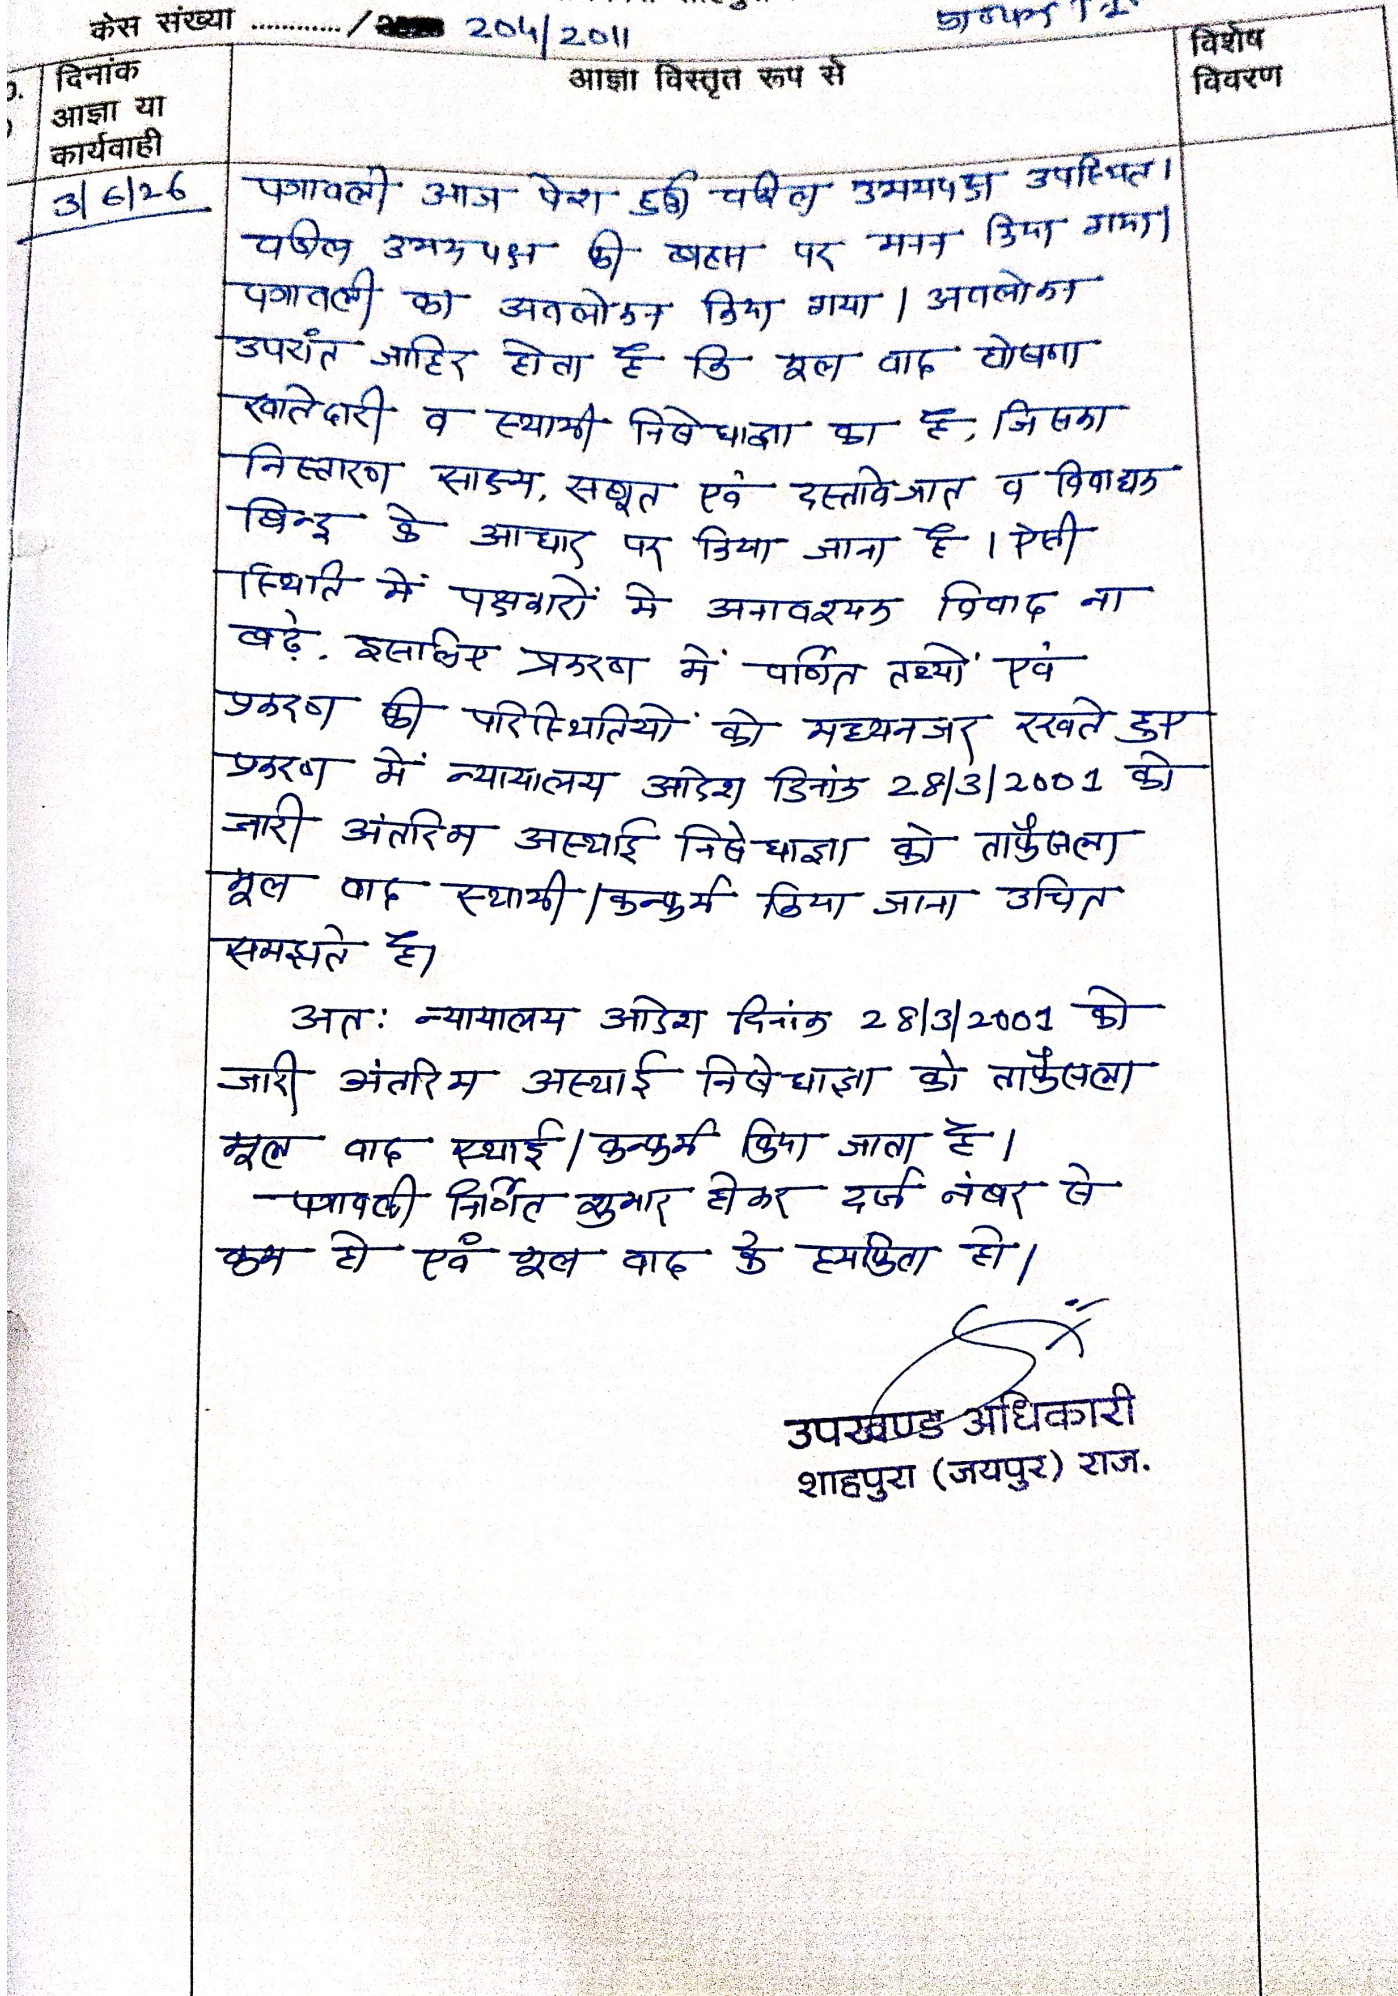 केस संख्या ............/ 204/2011
दिनांक
आज्ञा या
कार्यवाही
आज्ञा विस्तृत रूप से
विशेष
विवरण
3/6/26
पत्रावली आज पेश हुई वकील उभयपक्ष उपस्थित।
वकील उभयपक्ष की बहस पर मनन किया गया।
पत्रावली का अवलोकन किया गया। अवलोकन
उपरांत जाहिर होता है कि मूल वाद घोषणा
खातेदारी व स्थायी निषेधाज्ञा का है, जिसका
निस्तारण साक्ष्य, सबूत एवं दस्तावेजात व विवाद्यक
बिन्दु के आधार पर किया जाना है। ऐसी
स्थिति में पक्षकारों मे अनावश्यक विवाद ना
बढ़े, इसलिए प्रकरण में वर्णित तथ्यों एवं
प्रकरण की परिस्थितियों को मध्यनजर रखते हुए
प्रकरण में न्यायालय आदेश दिनांक 28/3/2001 को
जारी अंतरिम अस्थाई निषेधाज्ञा को ताफैसला
मूल वाद स्थायी/कन्फर्म किया जाना उचित
समझते है।
अत: न्यायालय आदेश दिनांक 28/3/2001 को
जारी अंतरिम अस्थाई निषेधाज्ञा को ताफैसला
मूल वाद स्थाई/कन्फर्म किया जाता है।
पत्रावली निर्णित शुमार होकर दर्ज नंबर से
कम हो एवं मूल वाद के हमकिता हो।
उपखण्ड अधिकारी
शाहपुरा (जयपुर) राज.